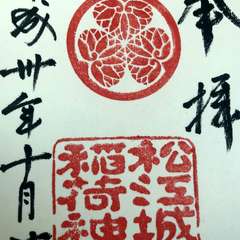 奉拝
松江城
稲荷神
成卅年十月